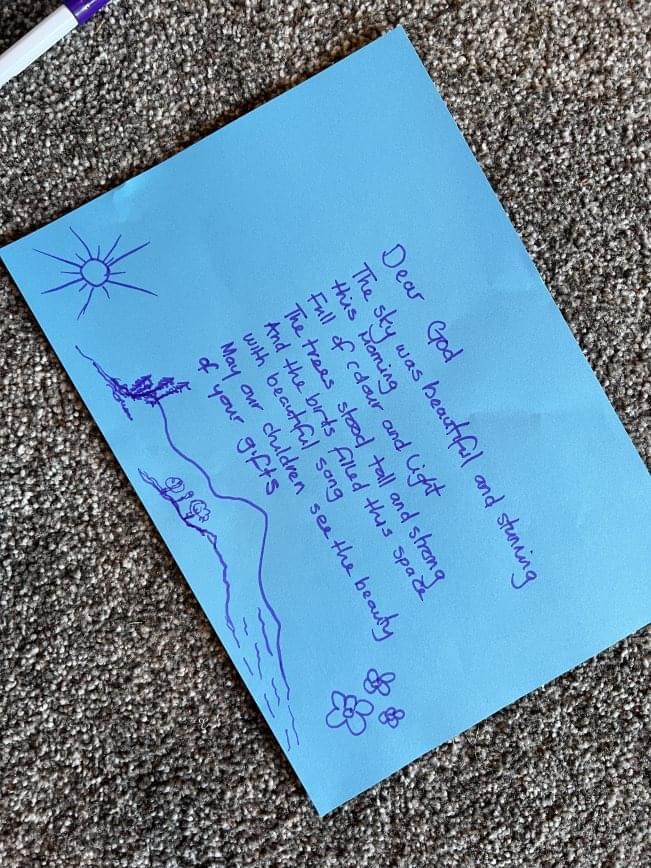 Dear God
The sky was beautiful and stunning
this morning
Full of colour and light
The trees stood tall and strong
And the birds filled this space
with beautiful song
May our children see the beauty
of your gifts